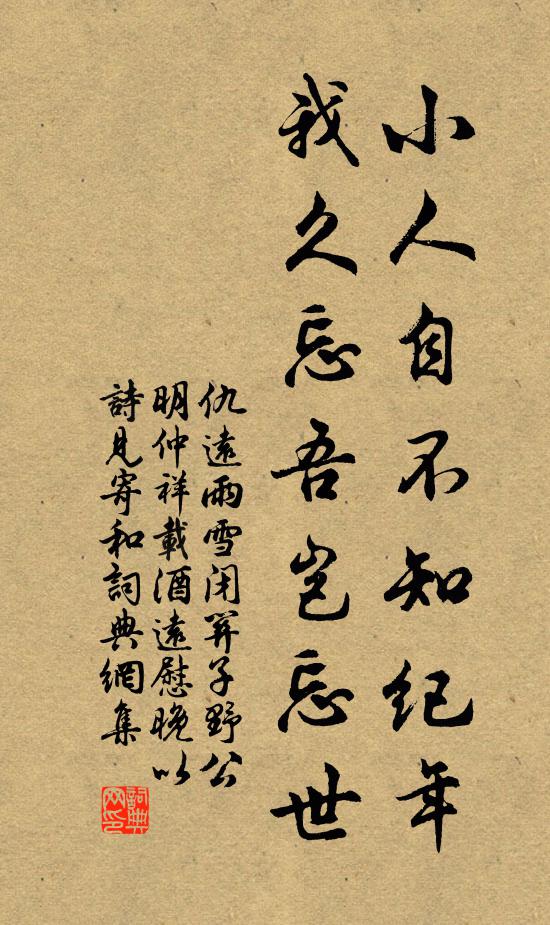 小人自不知纪年
我久忘吾岂忘世
仇遠雨雪闭羿子野公
明仲祥載酒遠慰晚以
詩見寄和詞典網集
詞典网印